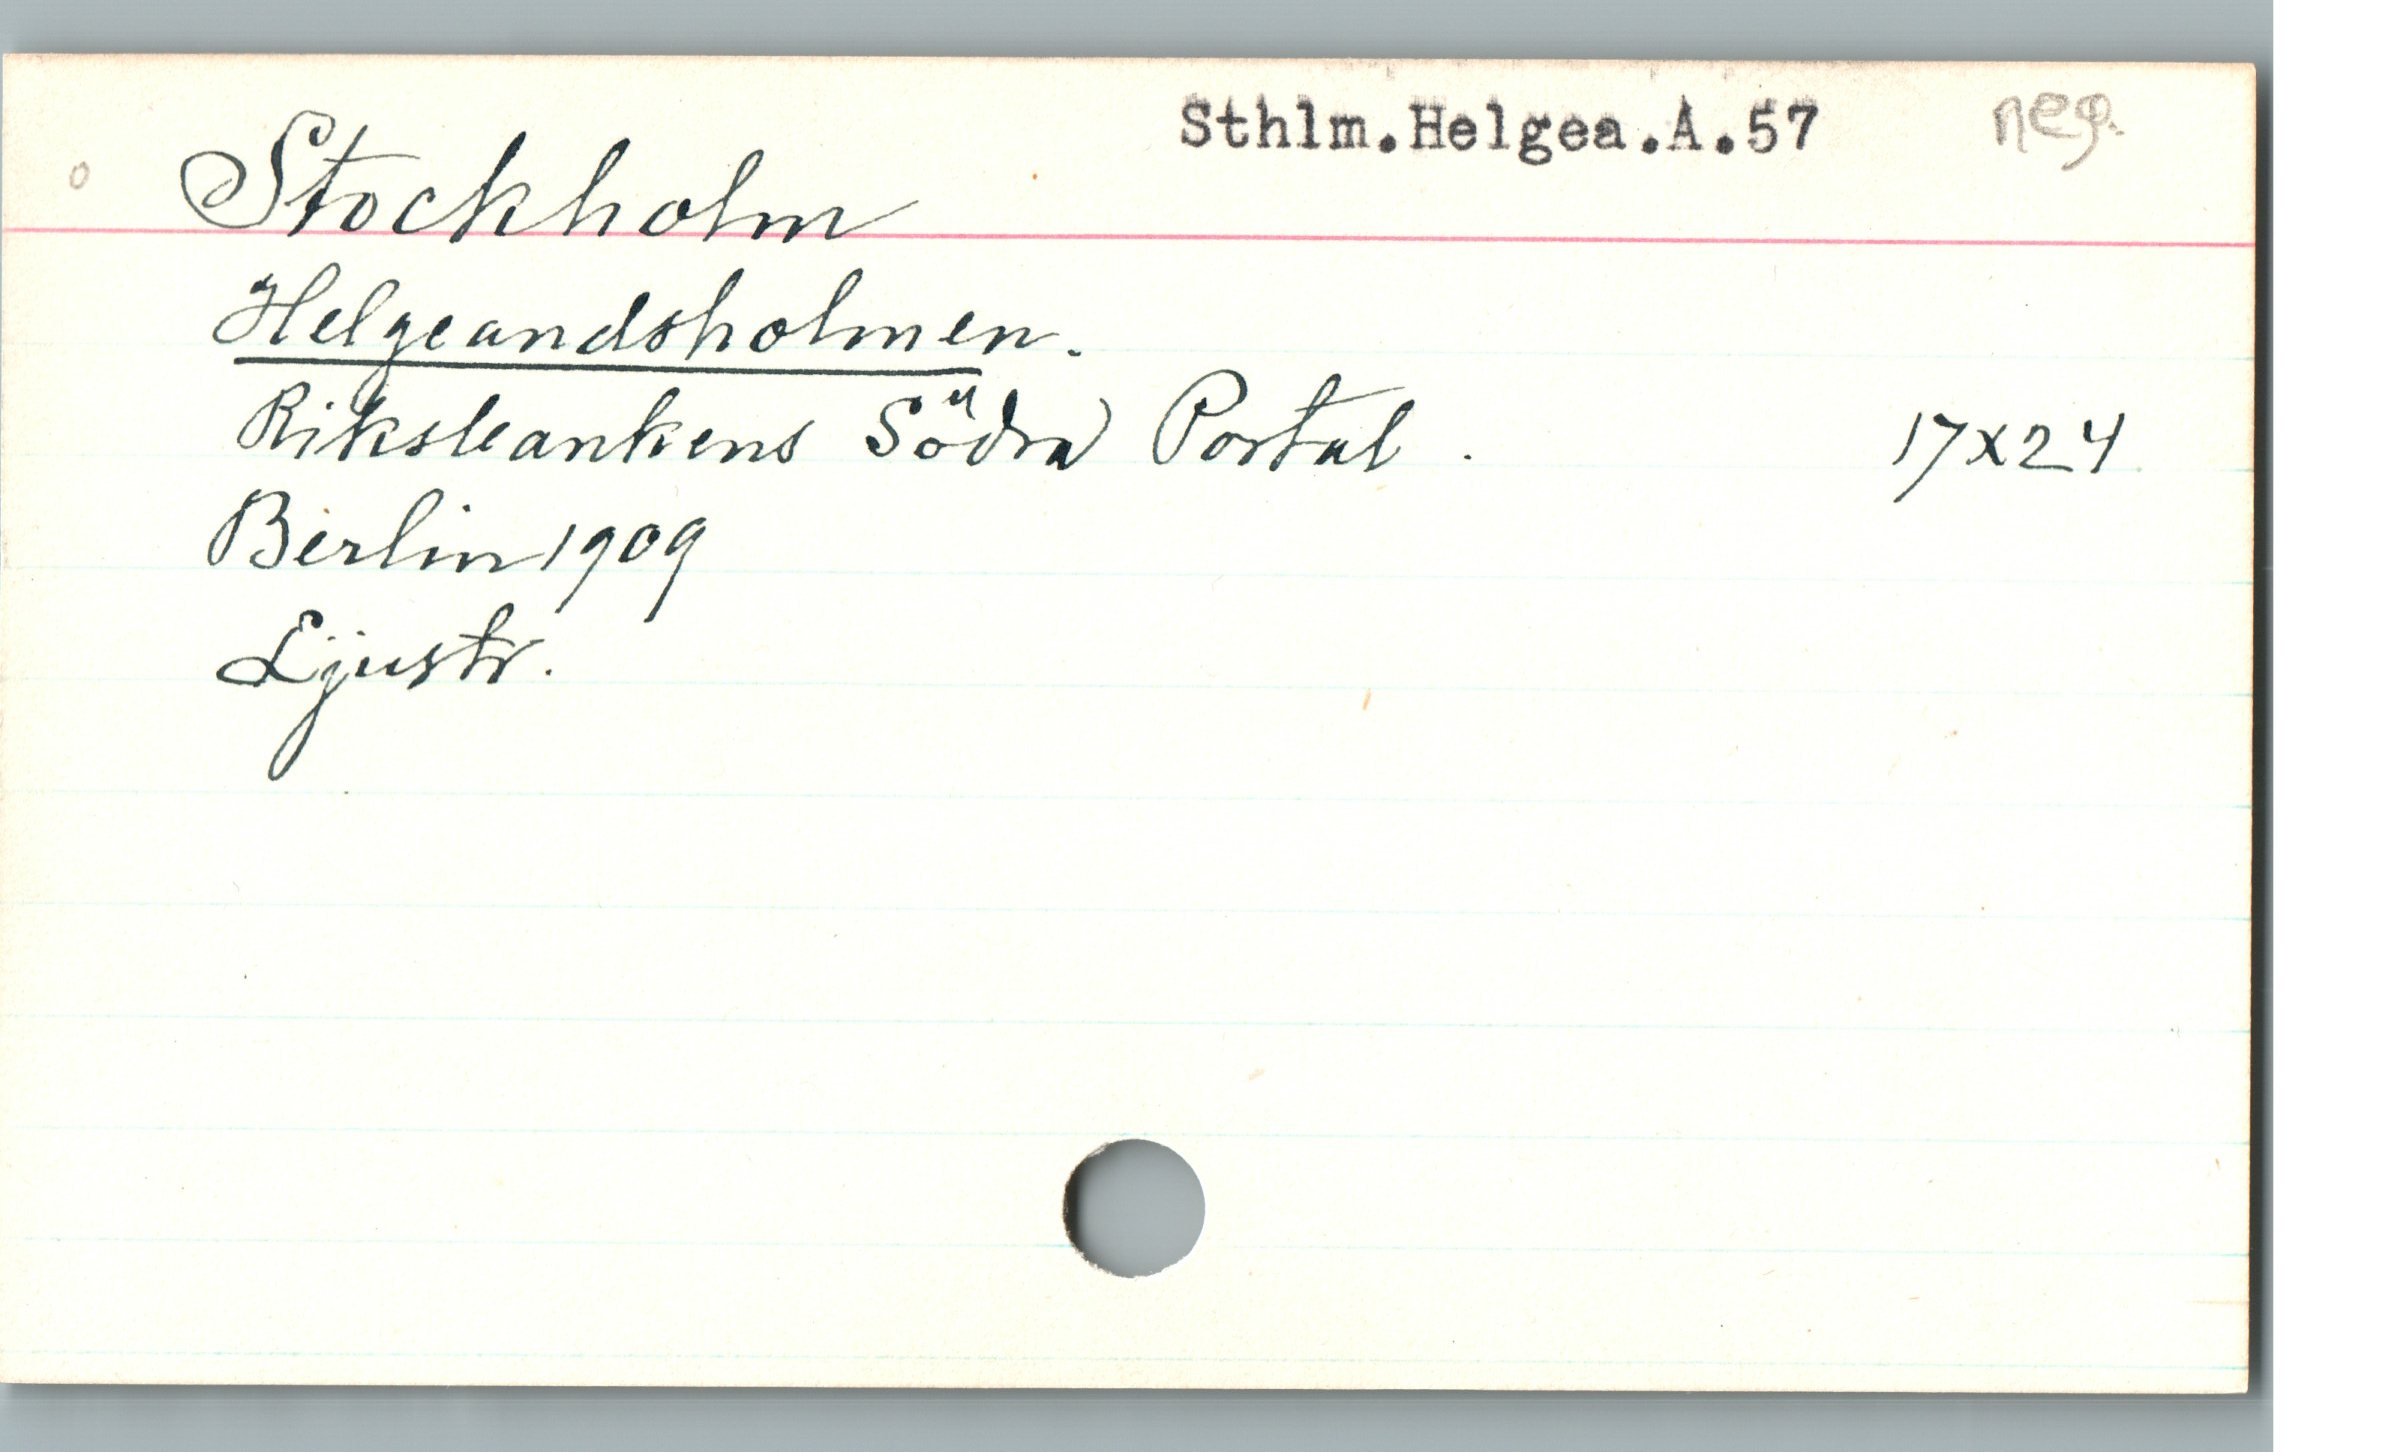 Sthlm.Helgea.A.57 neg.
o Stockholm
Helgeandsholmen.
Riksbankens Södra Portal. 17x24
Berlin 1909
Ljustr.